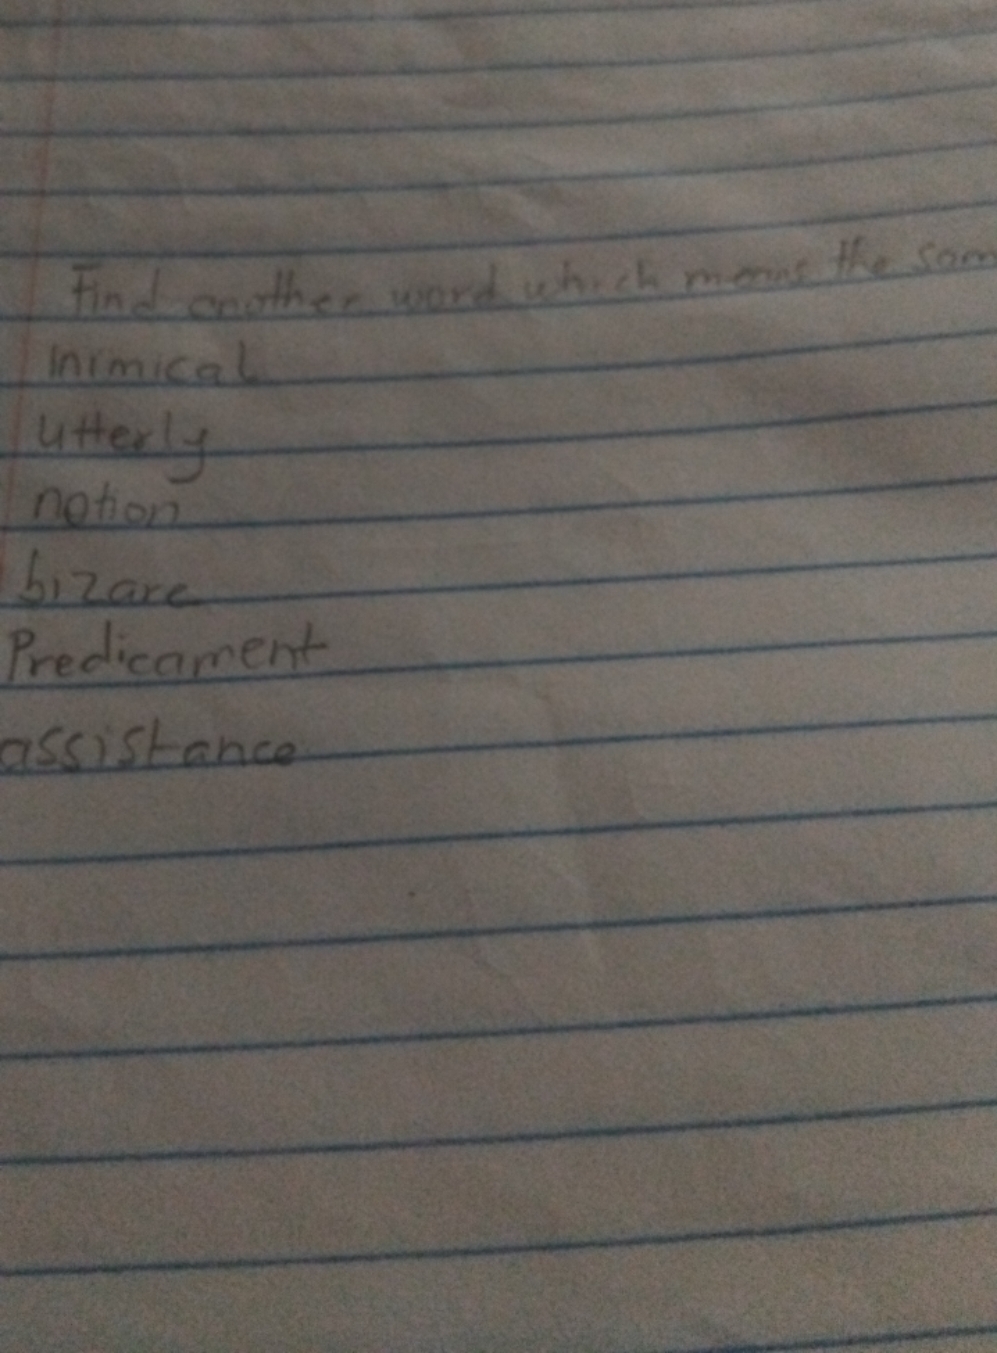 Find another word which means the som
inimical
utterly
notion
bizare
Predicament
assistance